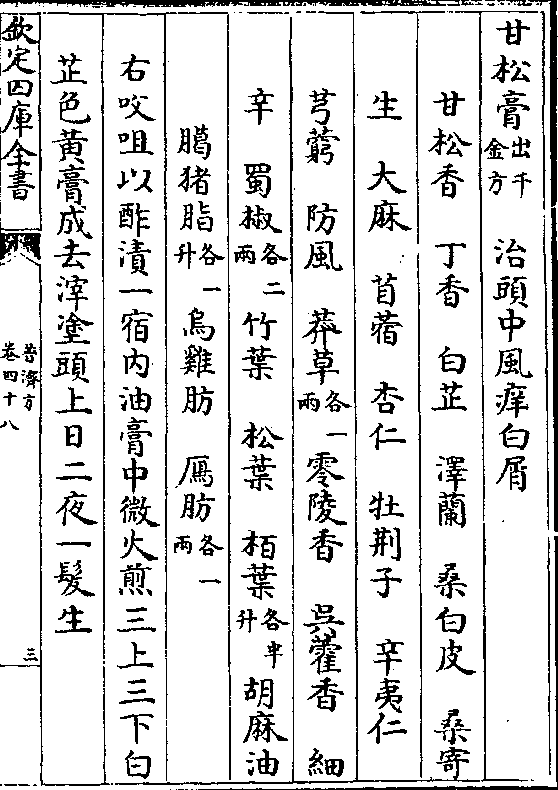 甘松膏出千金方　治頭中風痒白屑
甘松香　丁香　白芷　澤蘭　桑白皮　桑寄
生　大麻　苜蓿　杏仁　牡荆子　辛夷仁
芎藭　防風　莽草各一兩　零陵香　吳藿香　細
辛　蜀椒各二兩　竹葉　松葉　栢葉各半升　胡麻油
臈猪脂各一升　烏雞肪　鴈肪各一兩
右㕮咀以酢漬一宿内油膏中微火煎三上三下白
芷色黄膏成去滓塗頭上日二夜一髮生
欽定四庫全書
普濟方
卷四十八
三